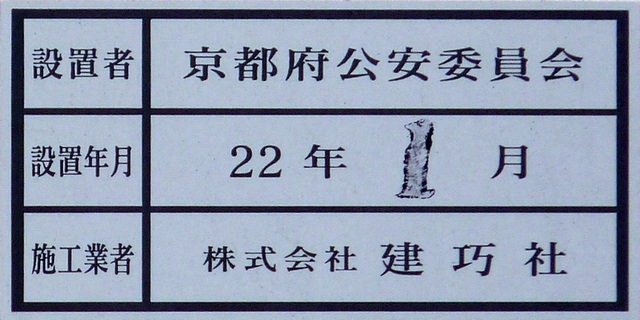 設置者 京都府公安委員会
設置年月 22年 1 月
施工業者 株式会社 建巧社